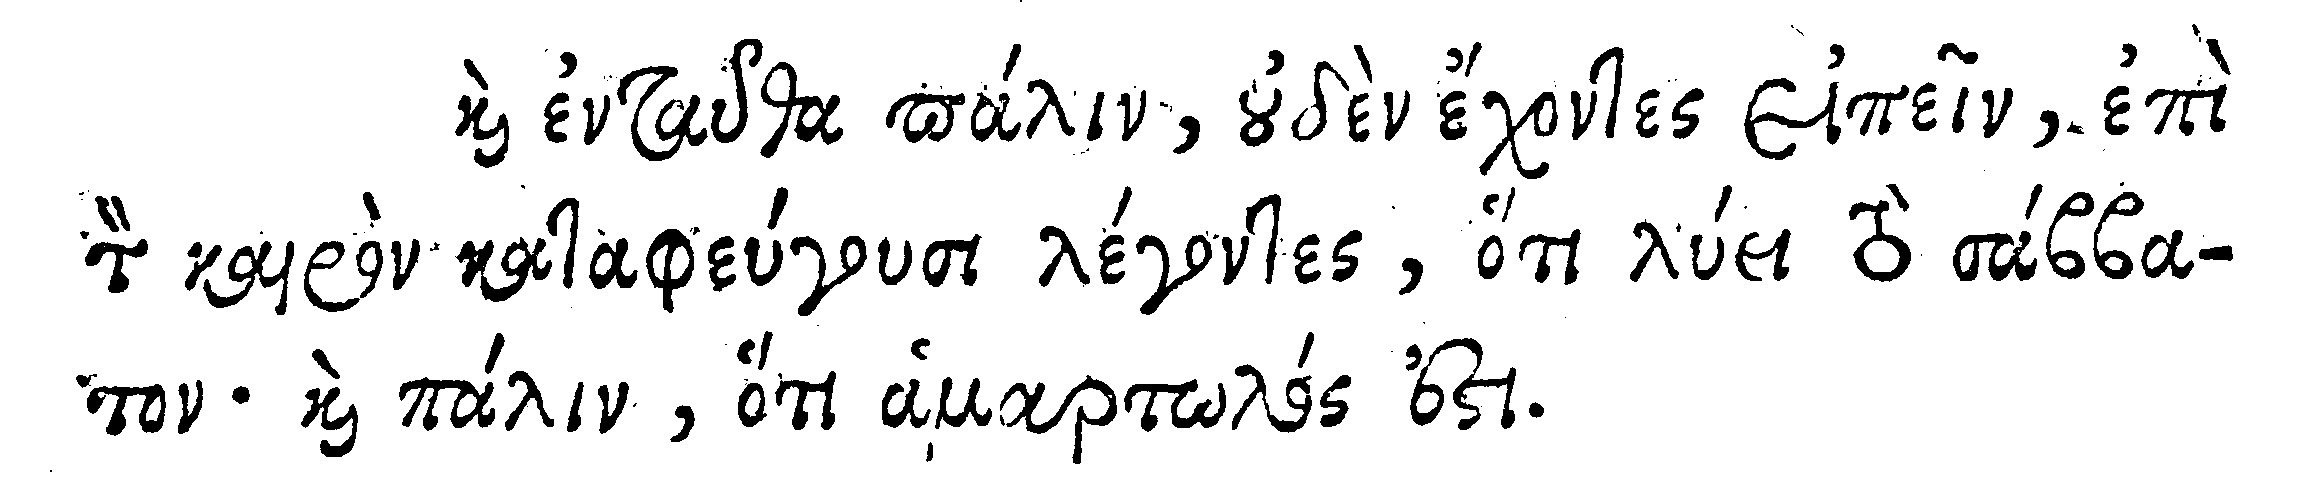 καὶ ἐνταῦθα πάλιν, οὐδὲν ἔχοντες εἰπεῖν, ἐπὶ
τὸν καιρὸν καταφεύγουσι λέγοντες, ὅτι λύει τὸ σάββα-
τον· καὶ πάλιν, ὅτι ἁμαρτωλός ἐστι.